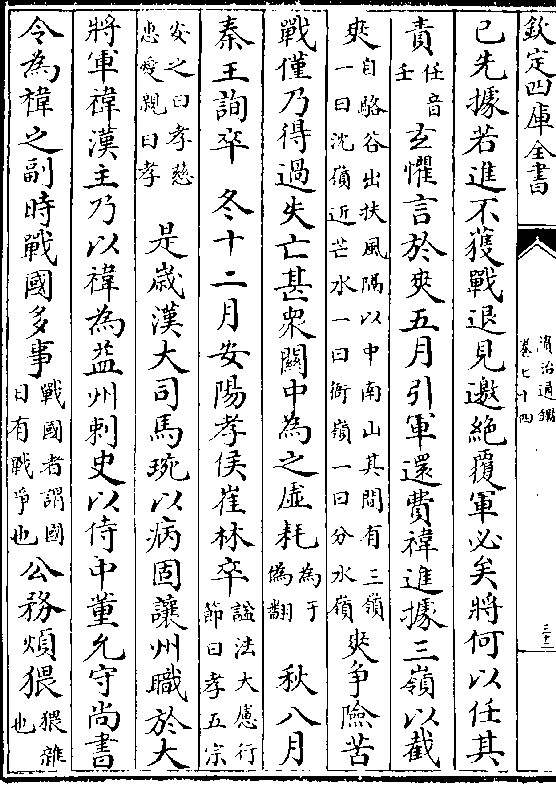 欽定四庫全書
資治通鑑
卷七十四
三十二
已先據若進不獲戰退見邀絶覆軍必矣將何以任其
責任音壬玄懼言於爽五月引軍還費禕進據三嶺以截
爽自駱谷出扶風隔以中南山其間有三嶺一曰沈嶺近芒水一曰衙嶺一曰分水嶺爽爭險苦
戰僅乃得過失亡甚衆闗中為之虛耗為于偽翻秋八月
秦王詢卒冬十二月安陽孝侯崔林卒諡法大慮行節曰孝五宗
安之曰孝慈惠愛親曰孝是歲漢大司馬琬以病固讓州職於大
將軍禕漢主乃以禕為益州刺史以侍中董允守尚書
令為禕之副時戰國多事戰國者謂國日有戰爭也公務煩猥猥雜也